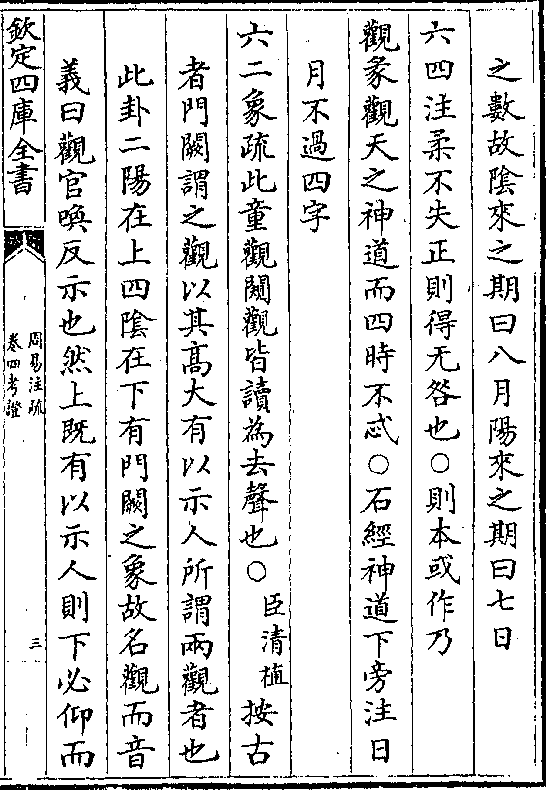 之數故陰來之期曰八月陽來之期曰七日
六四注柔不失正則得无咎也○則本或作乃
觀彖觀天之神道而四時不忒○石經神道下旁注日
月不過四字
六二象疏此童觀闚觀皆讀為去聲也○臣清植按古
者門闕謂之觀以其髙大有以示人所謂兩觀者也
此卦二陽在上四陰在下有門闕之象故名觀而音
義曰觀官喚反示也然上既有以示人則下必仰而
欽定四庫全書
周易注疏
卷四考證
三